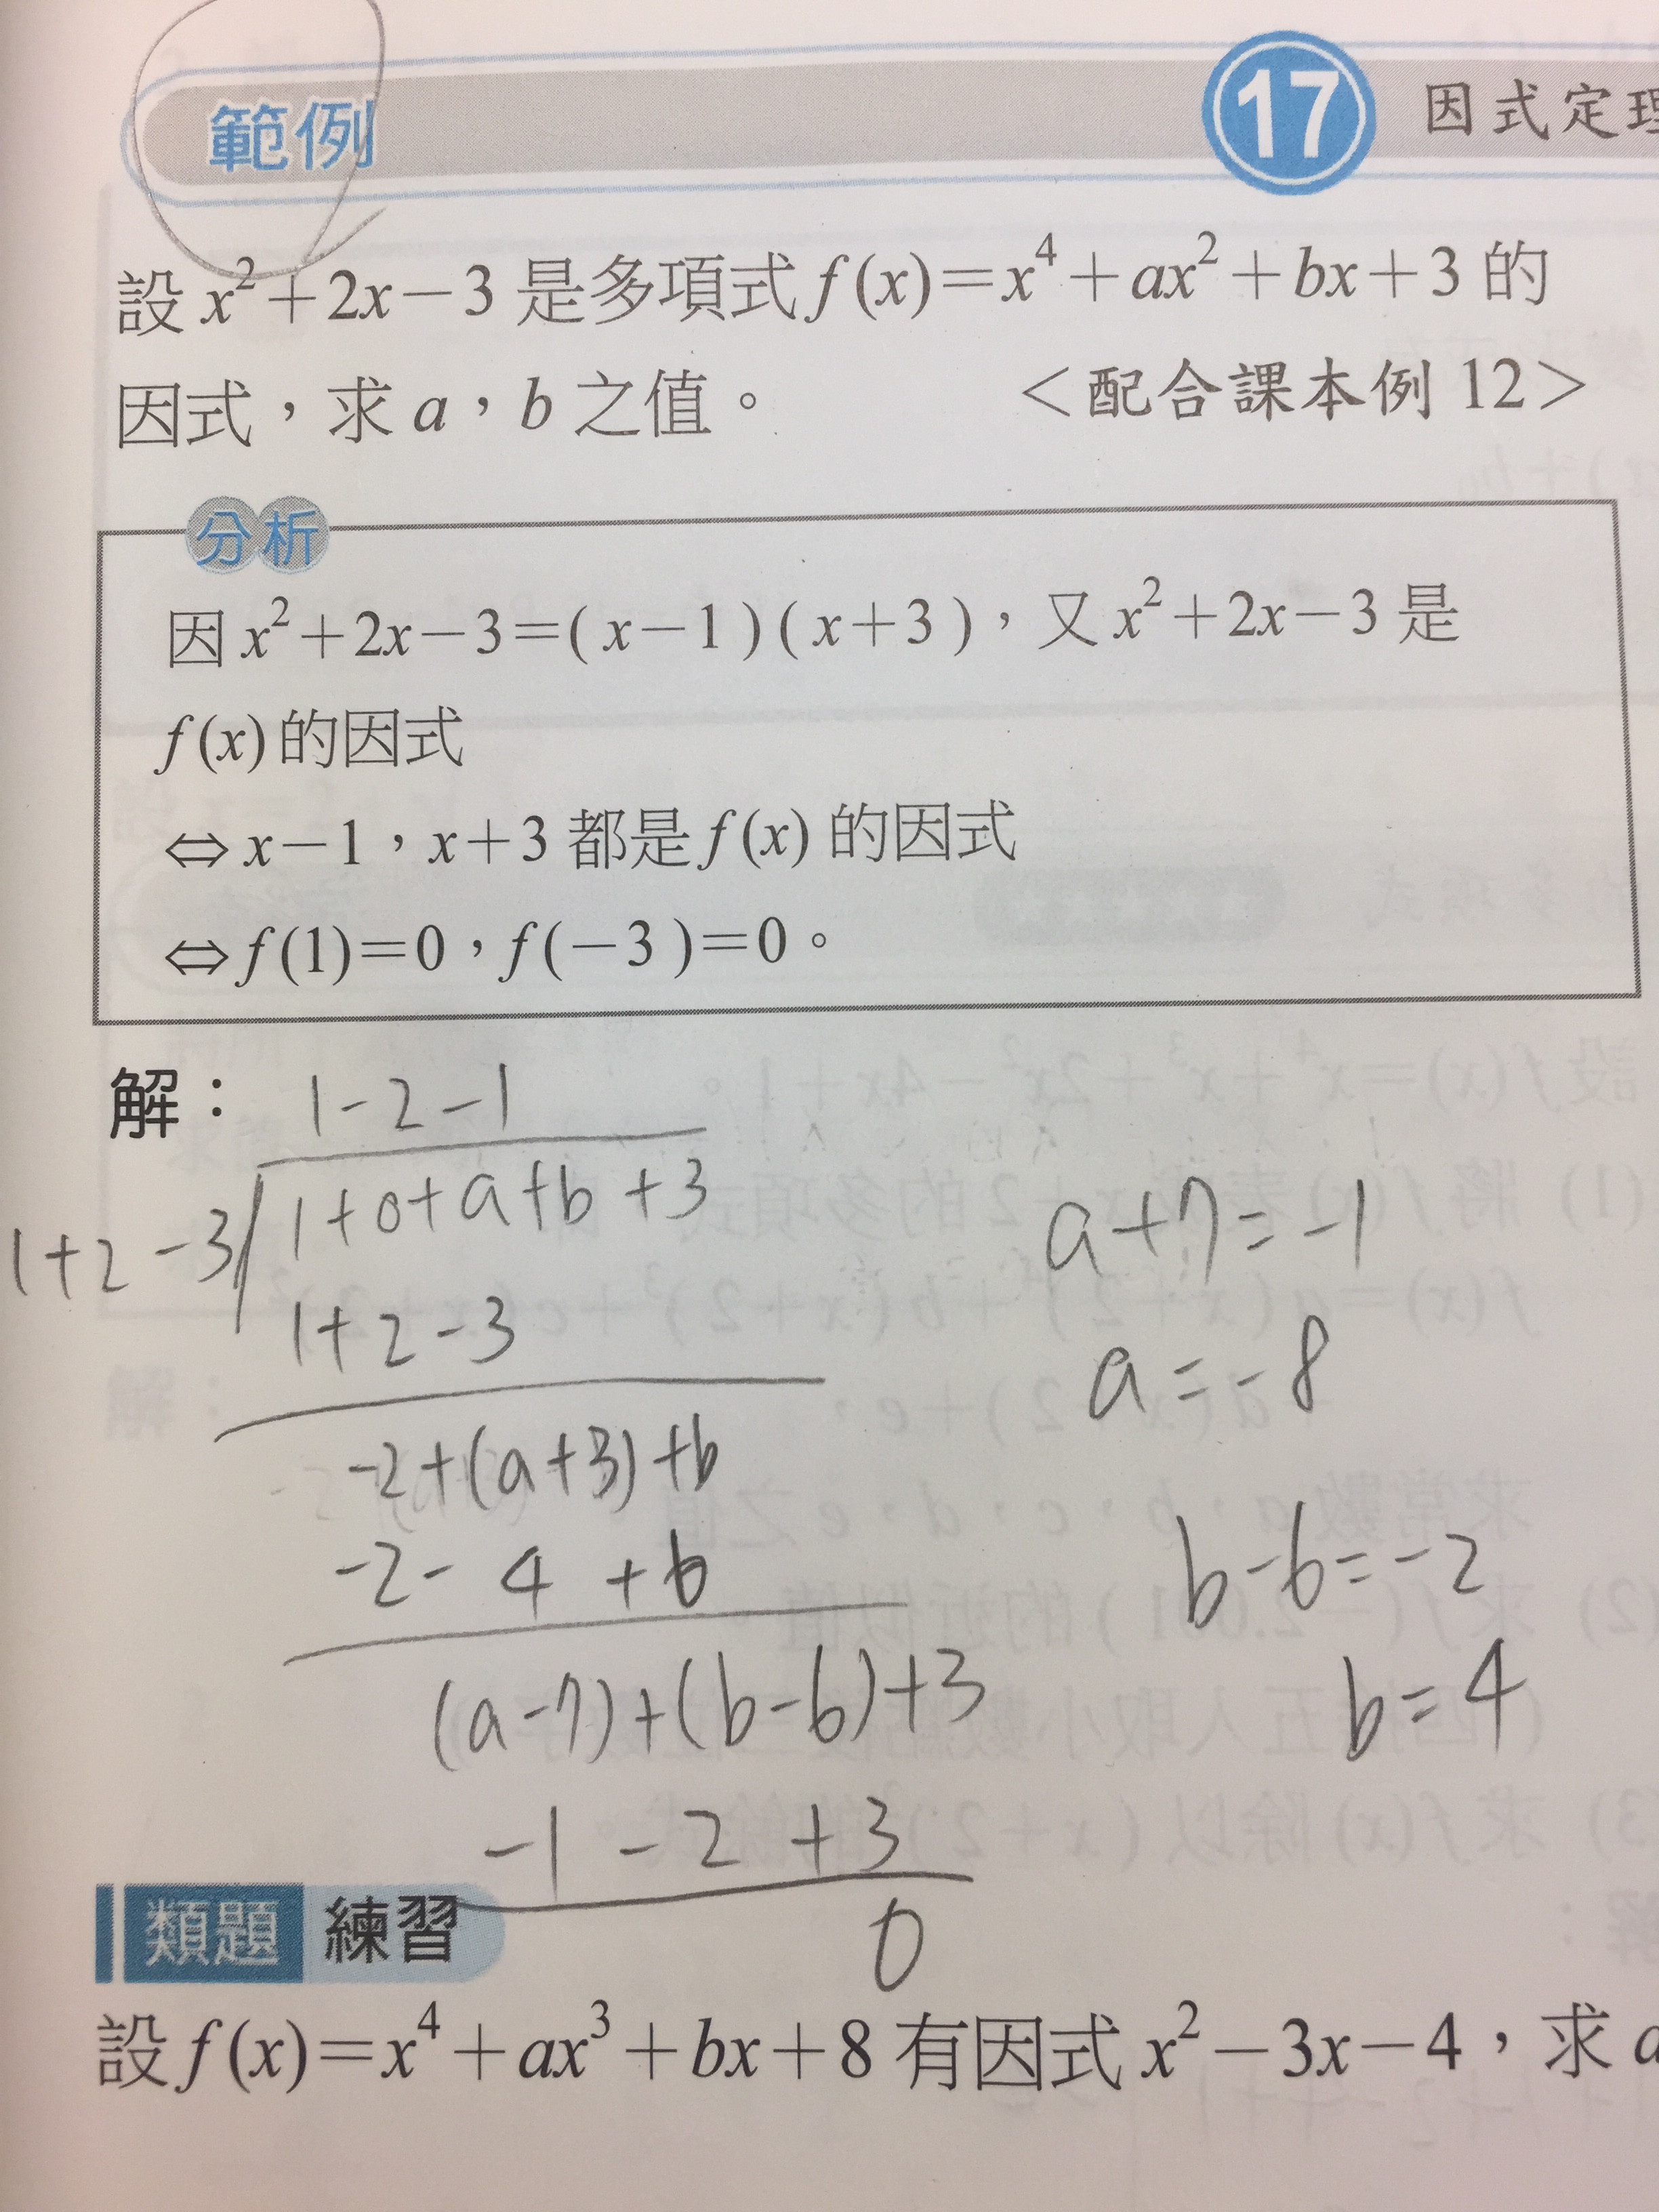 範例 17 因式定理
設 x²+2x-3 是多項式 f(x)=x⁴+ax²+bx+3 的
因式，求 a，b 之值。 <配合課本例 12>
分析
因 x²+2x-3=(x-1)(x+3)，又 x²+2x-3 是
f(x) 的因式
⇔ x-1，x+3 都是 f(x) 的因式
⇔ f(1)=0，f(-3)=0。
解：
1-2-1
1+2-3 1+0+a+b+3
1+2-3
-2+(a+3)+b
-2-4+6
(a-7)+(b-6)+3
-1-2+3
0
a+7=-1
a=-8
b-6=-2
b=4
類題 練習
設 f(x)=x⁴+ax³+bx+8 有因式 x²-3x-4，求 a